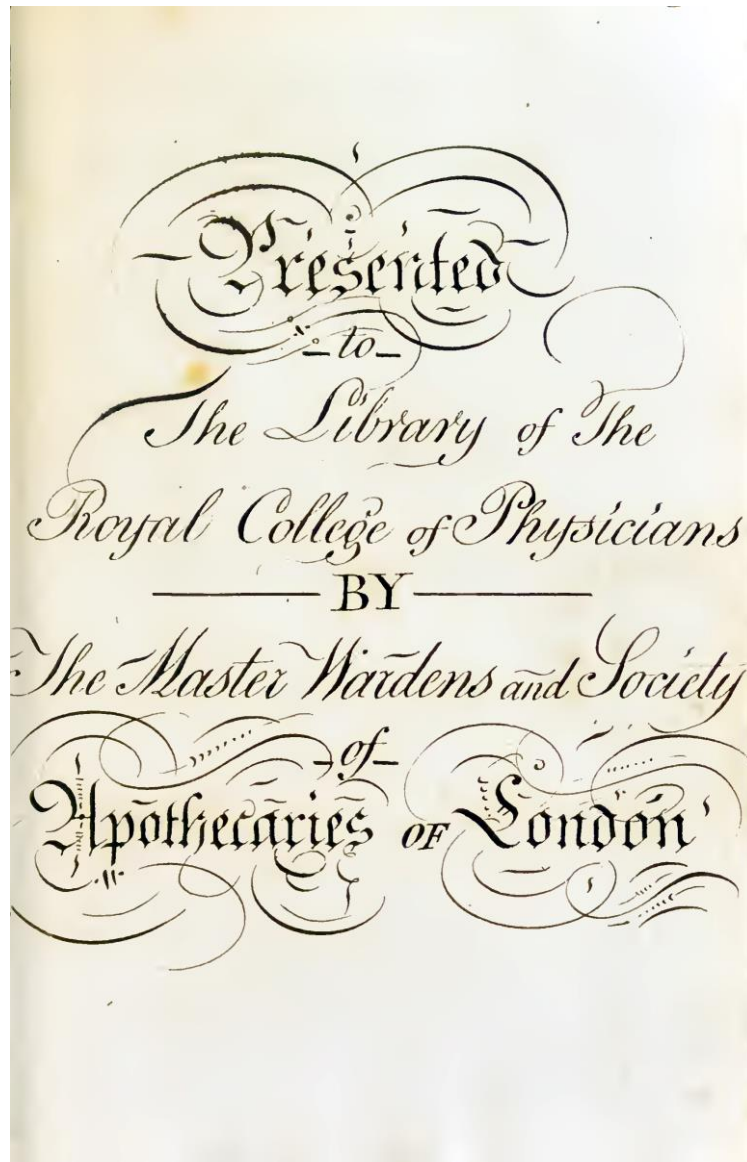 Presented
-to-
The Library of The
Royal College of Physicians
BY
The Master Wardens and Society
-of-
Apothecaries OF London